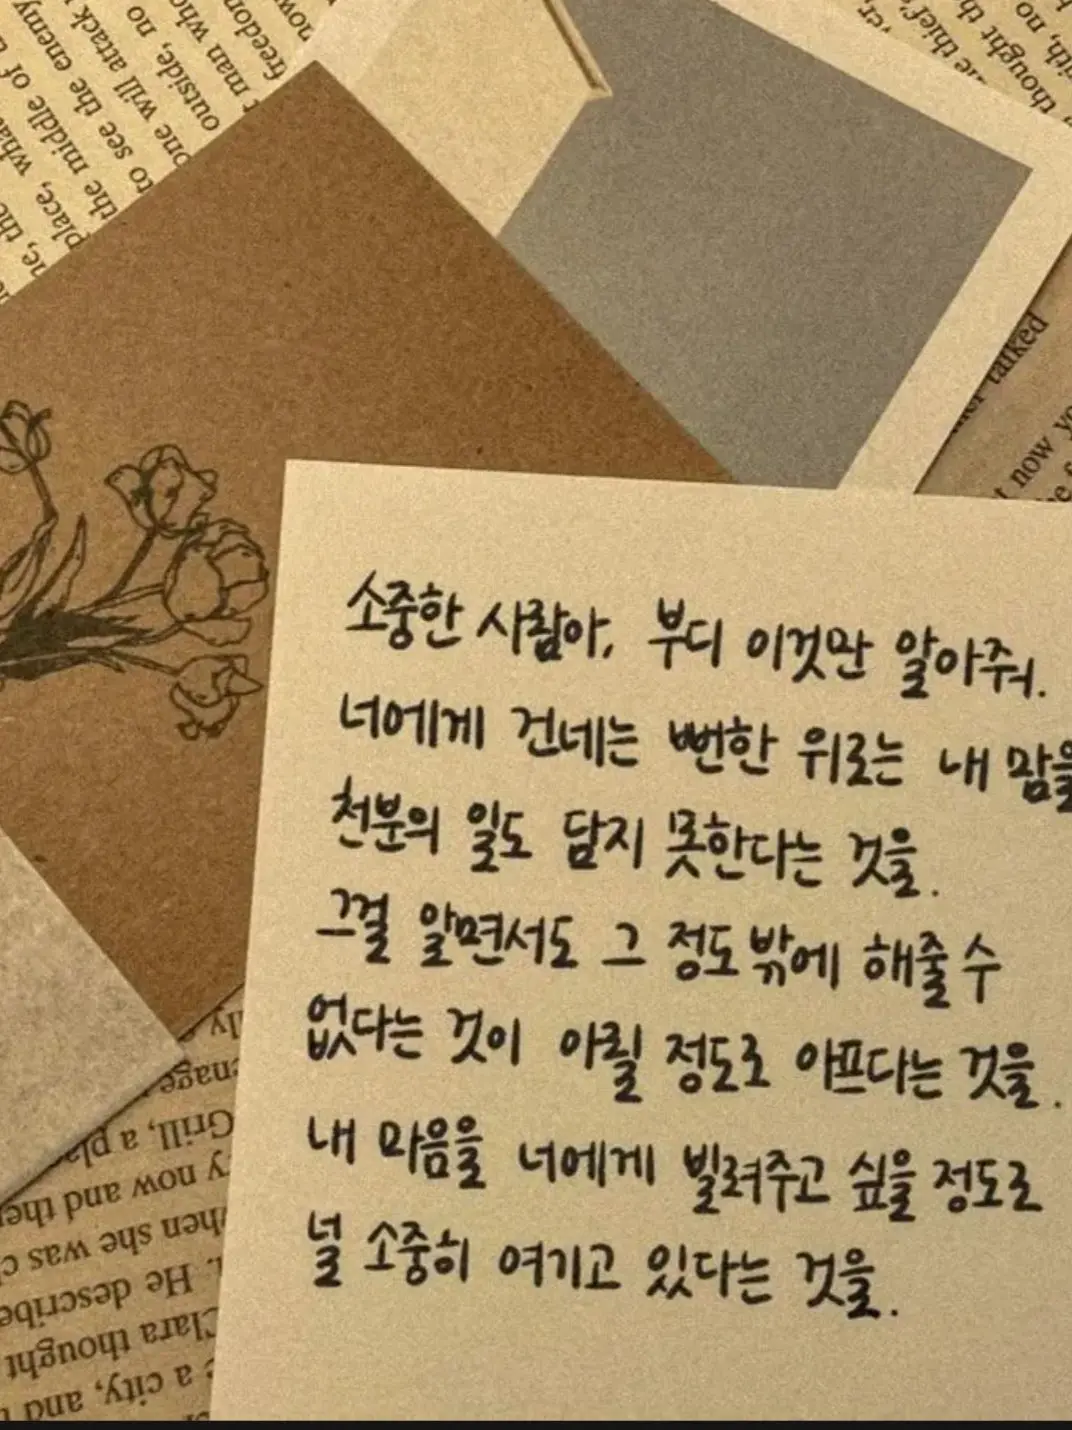 now
freedom
t man who
outside, no
one will attack
to see the enemy
the middle of a
place, what
he, the
no
thought th
e thief
ver,
her talked
t now yo
소중한 사람아, 부디 이것만 알아줘.
너에게 건네는 뻔한 위로는 내 맘을
천분의 일도 담지 못한다는 것을.
그걸 알면서도 그 정도밖에 해줄 수
없다는 것이 아릴 정도로 아프다는 것을.
내 마음을 너에게 빌려주고 싶을 정도로
널 소중히 여기고 있다는 것을.
Grill, a pla
y now and the
when she was c
. He describe
Clara thought
e a city, and